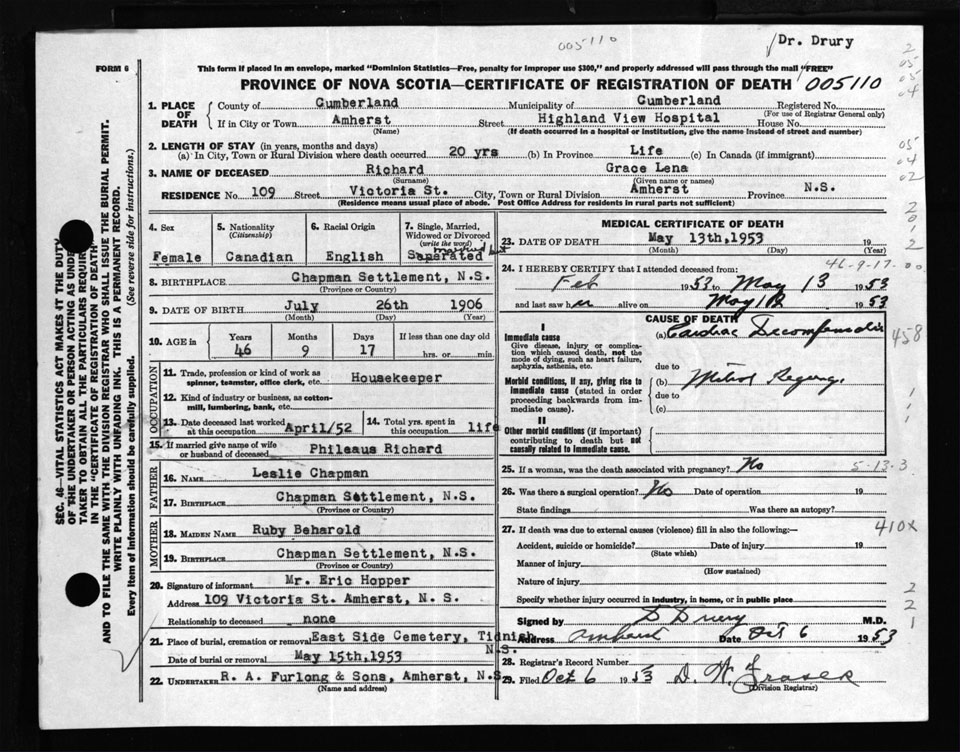 005110
Dr. Drury
FORM 6
This form if placed in an envelope, marked "Dominion Statistics—Free, penalty for improper use $300," and properly addressed will pass through the mail "FREE"
PROVINCE OF NOVA SCOTIA—CERTIFICATE OF REGISTRATION OF DEATH 005110
1. PLACE OF DEATH { County of Cumberland Municipality of Cumberland Registered No.
(For use of Registrar General only)
If in City or Town Amherst Street Highland View Hospital House No.
(Name) (If death occurred in a hospital or institution, give the name instead of street and number)
2. LENGTH OF STAY (in years, months and days)
(a) In City, Town or Rural Division where death occurred 20 yrs (b) In Province Life (c) In Canada (if immigrant)
3. NAME OF DECEASED Richard Grace Lena
(Surname) (Given name or names)
RESIDENCE No. 109 Street Victoria St. City, Town or Rural Division Amherst Province N.S.
(Residence means usual place of abode. Post Office Address for residents in rural parts not sufficient)
4. Sex
Female
5. Nationality
(Citizenship)
Canadian
6. Racial Origin
English
7. Single, Married, Widowed or Divorced
(write the word)
married but
Separated
8. BIRTHPLACE Chapman Settlement, N.S.
(Province or Country)
9. DATE OF BIRTH July 26th 1906
(Month) (Day) (Year)
10. AGE in Years Months Days If less than one day old
46 9 17 hrs. or min.
OCCUPATION
11. Trade, profession or kind of work as spinner, teamster, office clerk, etc. Housekeeper
12. Kind of industry or business, as cotton-mill, lumbering, bank, etc.
13. Date deceased last worked at this occupation April/52
14. Total yrs. spent in this occupation life
15. If married give name of wife or husband of deceased Phileaus Richard
FATHER
16. NAME Leslie Chapman
17. BIRTHPLACE Chapman Settlement, N.S.
(Province or Country)
MOTHER
18. MAIDEN NAME Ruby Beharold
19. BIRTHPLACE Chapman Settlement, N.S.
(Province or Country)
20. Signature of informant Mr. Eric Hopper
Address 109 Victoria St. Amherst, N. S.
Relationship to deceased none
21. Place of burial, cremation or removal East Side Cemetery, Tidnish
N.S.
Date of burial or removal May 15th, 1953
22. UNDERTAKER R. A. Furlong & Sons, Amherst, N.S.
(Name and address)
MEDICAL CERTIFICATE OF DEATH
23. DATE OF DEATH May 13th, 1953 19
(Month) (Day) (Year)
24. I HEREBY CERTIFY that I attended deceased from: 46-9-17.
Feb 1953 to May 13 1953
and last saw her alive on May 1953
CAUSE OF DEATH
I
Immediate cause
Give disease, injury or complication which caused death, not the mode of dying, such as heart failure, asphyxia, asthenia, etc.
(a) Cardiac Decompensation
due to
Morbid conditions, if any, giving rise to immediate cause (stated in order proceeding backwards from immediate cause).
(b) Mitral Regurg.
due to
(c)
II
Other morbid conditions (if important) contributing to death but not causally related to immediate cause.
458
25. If a woman, was the death associated with pregnancy? No 5-13-3
26. Was there a surgical operation? No Date of operation 19
State findings Was there an autopsy?
27. If death was due to external causes (violence) fill in also the following:— 410x
Accident, suicide or homicide? Date of injury 19
(State which)
Manner of injury
(How sustained)
Nature of injury
Specify whether injury occurred in industry, in home, or in public place
Signed by D Drury M.D.
Address Amherst Date Oct 6 1953
28. Registrar's Record Number
29. Filed Oct 6 1953 D. W. Fraser
(Division Registrar)
SEC. 46—VITAL STATISTICS ACT MAKES IT THE DUTY
OF THE UNDERTAKER OR PERSON ACTING AS UNDERTAKER
TO OBTAIN ALL THE PARTICULARS REQUIRED
IN THE "CERTIFICATE OF REGISTRATION OF DEATH"
AND TO FILE THE SAME WITH THE DIVISION REGISTRAR WHO SHALL ISSUE THE BURIAL PERMIT.
WRITE PLAINLY WITH UNFADING INK. THIS IS A PERMANENT RECORD.
Every item of information should be carefully supplied. (See reverse side for instructions.)